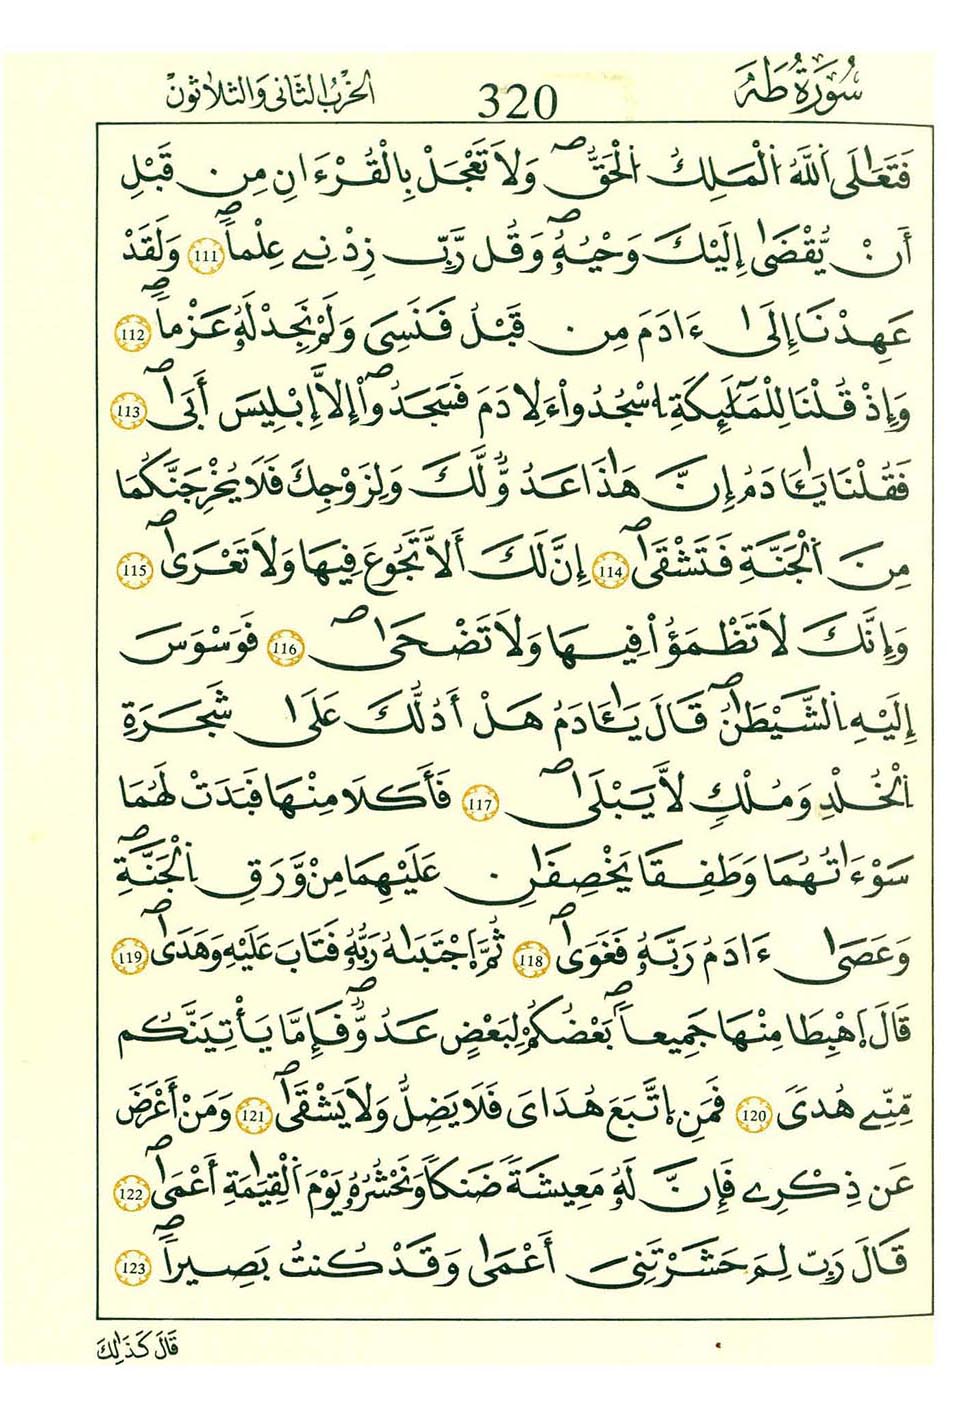 سُورَةُ طَهَ 320 الحِزْبُ الثَّانِي وَالثَّلَاثُونَ
فَتَعَٰلَى اَ۬للَّهُ اُ۬لْمَلِكُ اُ۬لْحَقُّۖ وَلَا تَعْجَلْ بِالْقُرْءَانِ مِن قَبْلِ
أَنْ يُّقْضَىٰ إِلَيْكَ وَحْيُهُۥۖ وَقُل رَّبِّ زِدْنِے عِلْماٗۖ 111 وَلَقَدْ
عَهِدْنَا إِلَىٰ ءَادَمَ مِن قَبْلُ فَنَسِيَ وَلَمْ نَجِدْ لَهُۥ عَزْماٗۖ 112
وَإِذْ قُلْنَا لِلْمَلَٰٓئِكَةِ اِ۟سْجُدُواْ ءلِادَمَ فَسَجَدُوٓاْ إِلَّا إِبْلِيسَ أَبَىٰۖ 113
فَقُلْنَا يَٰـَٔادَمُ إِنَّ هَٰذَا عَدُوّٞ لَّكَ وَلِزَوْجِكَ فَلَا يُخْرِجَنَّكُمَا
مِنَ اَ۬لْجَنَّةِ فَتَشْقَىٰۖ 114 إِنَّ لَكَ أَلَّا تَجُوعَ فِيهَا وَلَا تَعْرَىٰۖ 115
وَإِنَّكَ لَا تَظْمَؤُاْ فِيهَا وَلَا تَضْحَىٰۖ 116 فَوَسْوَسَ
إِلَيْهِ اِ۬لشَّيْطَٰنُۖ قَالَ يَٰـَٔادَمُ هَلْ أَدُلُّكَ عَلَىٰ شَجَرَةِ
اِ۬لْخُلْدِ وَمُلْكٖ لَّا يَبْلَىٰۖ 117 فَأَكَلَا مِنْهَا فَبَدَتْ لَهُمَا
سَوْءَٰتُهُمَا وَطَفِقَا يَخْصِفَٰنِ عَلَيْهِمَا مِنْ وَّرَقِ اِ۬لْجَنَّةِۖ
وَعَصَىٰ ءَادَمُ رَبَّهُۥ فَغَوَىٰۖ 118 ثُمَّ اَ۪جْتَبَٰهُ رَبُّهُۥ فَتَابَ عَلَيْهِ وَهَدَىٰۖ 119
قَالَ اَ۪هْبِطَا مِنْهَا جَمِيعاٗۖ بَعْضُكُمْ لِبَعْضٍ عَدُوّٞۖ فَإِمَّا يَأْتِيَنَّكُم
مِّنِّے هُدٗى 120 فَمَنِ اِ۪تَّبَعَ هُدَايَ فَلَا يَضِلُّ وَلَا يَشْقَىٰۖ 121 وَمَنْ أَعْرَضَ
عَن ذِكْرِے فَإِنَّ لَهُۥ مَعِيشَةٗ ضَنكاٗ وَنَحْشُرُهُۥ يَوْمَ اَ۬لْقِيَٰمَةِ أَعْمَىٰۖ 122
قَالَ رَبِّ لِمَ حَشَرْتَنِيَ أَعْمَىٰ وَقَدْ كُنتُ بَصِيراٗۖ 123
قَالَ كَذَٰلِكَ